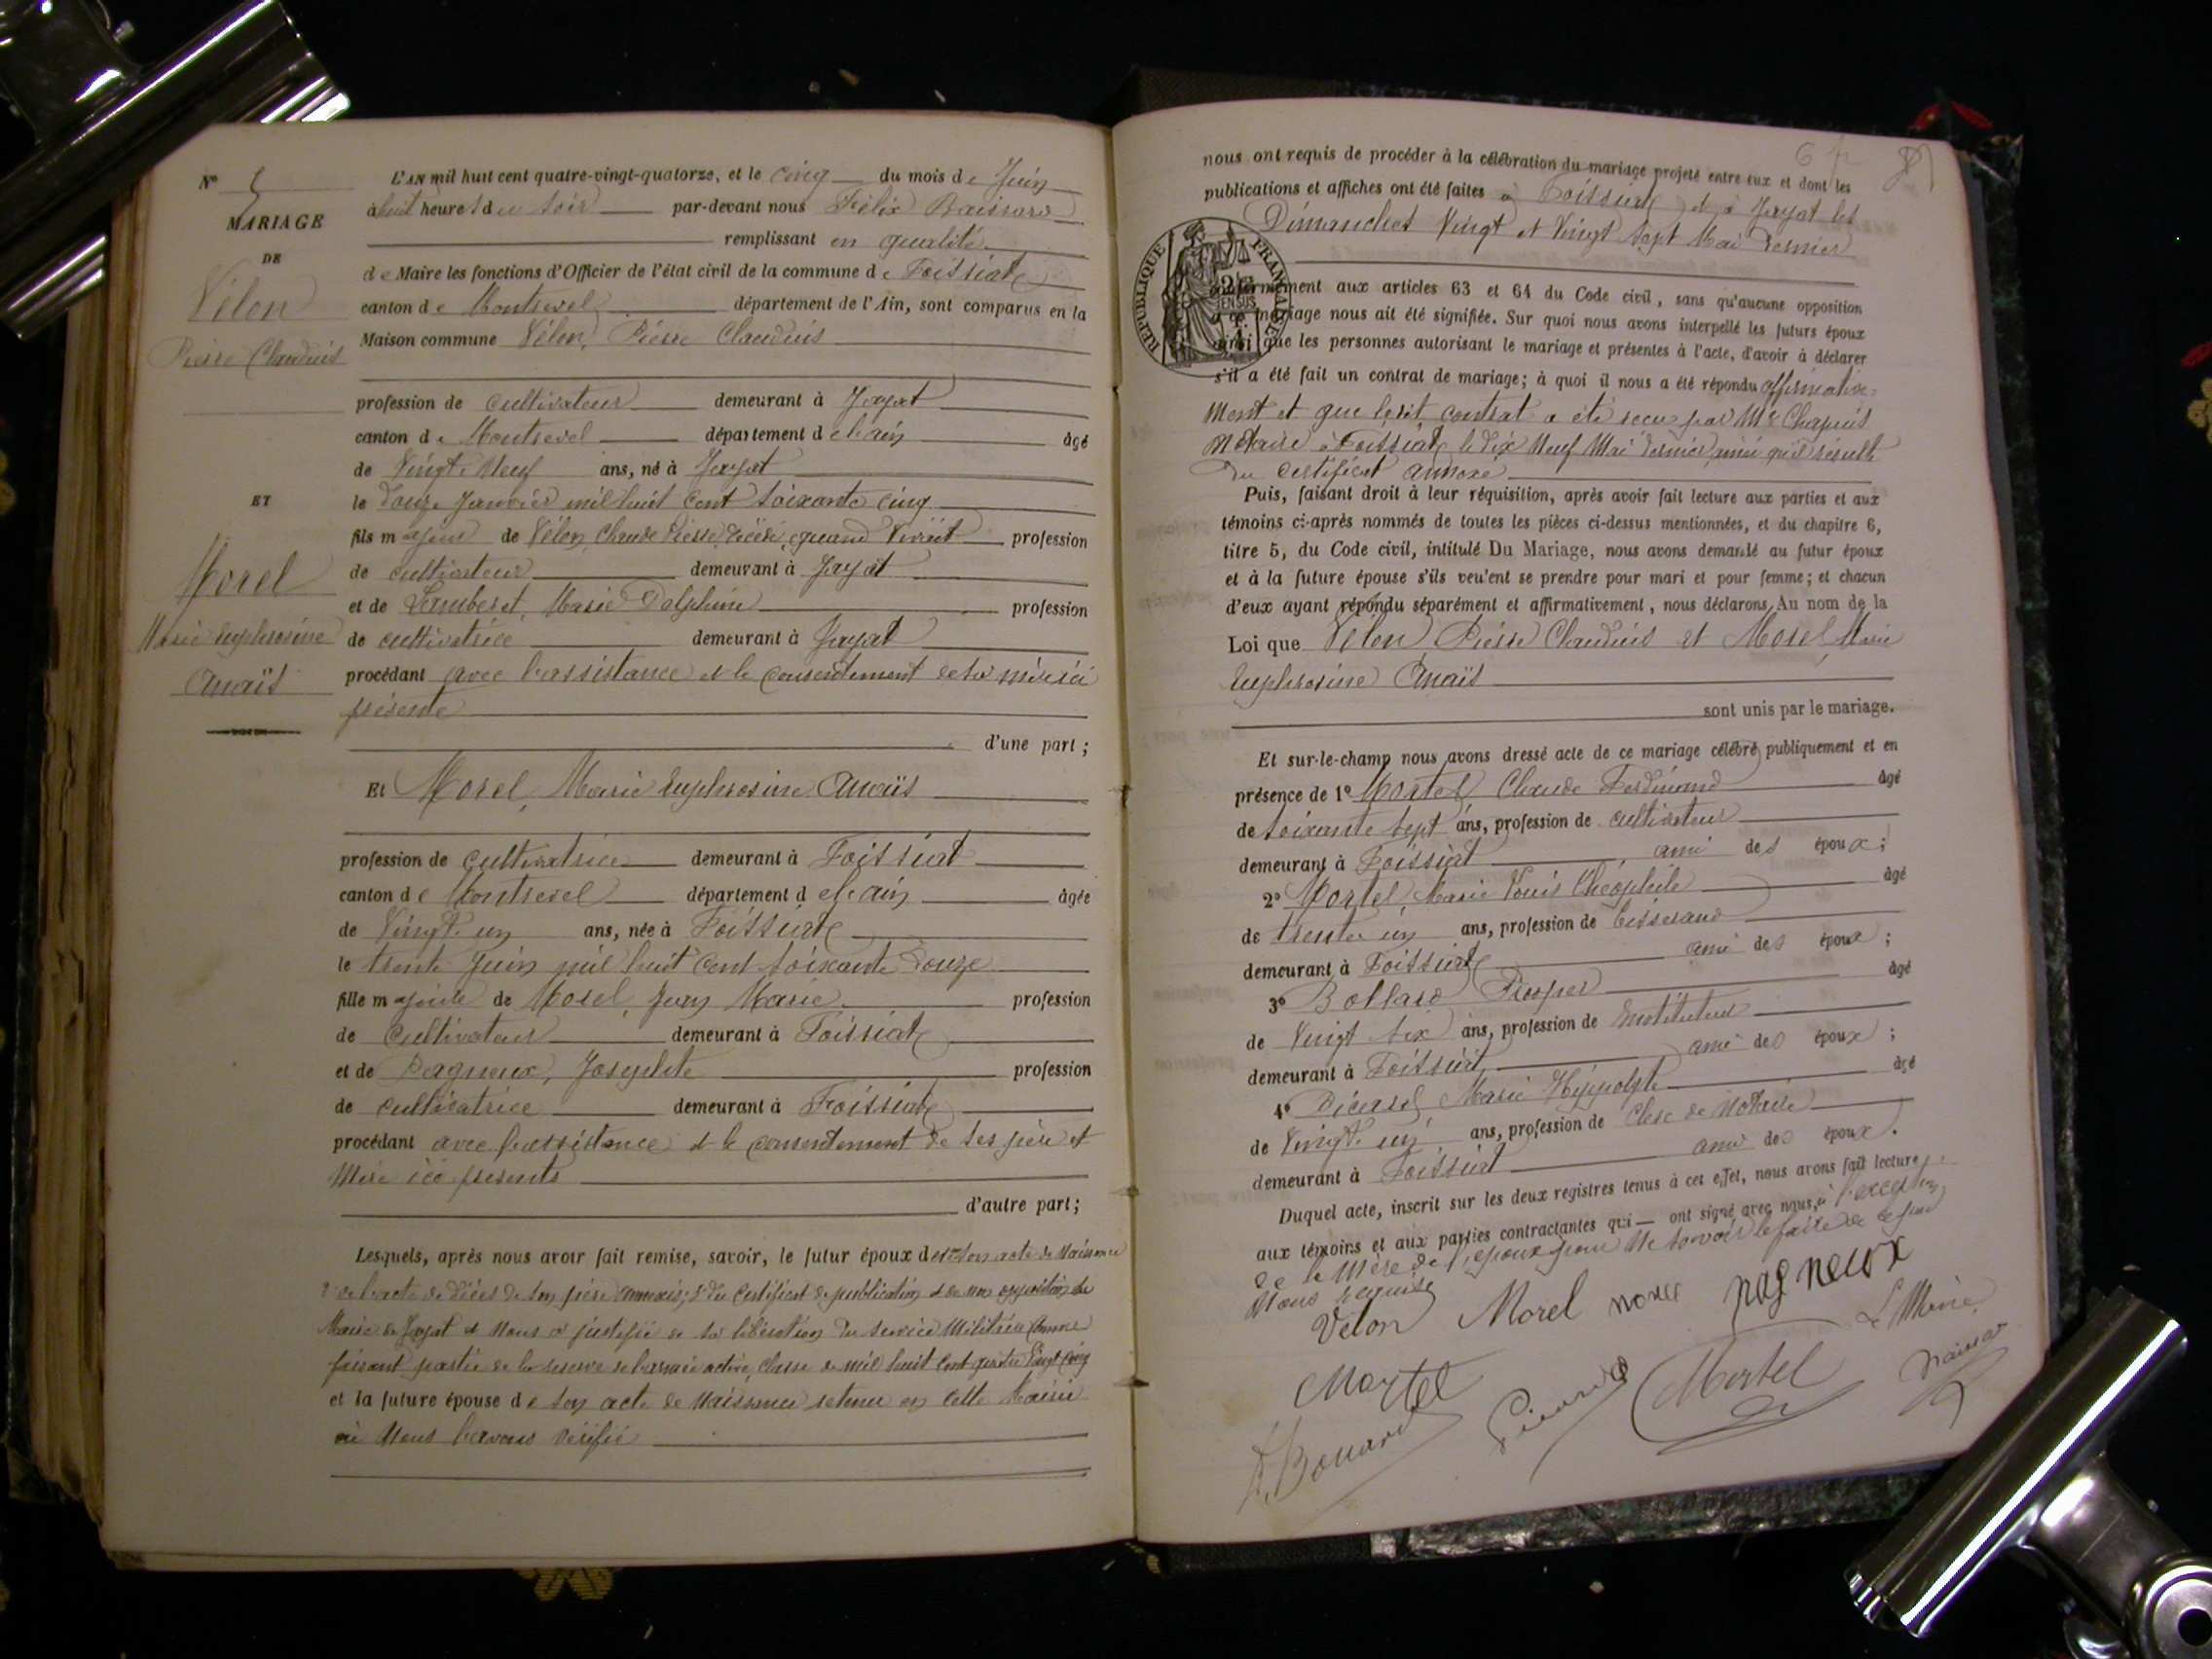 N° 5
MARIAGE
DE
Vélon
Pierre Claudius
ET
Morel
Marie Euphrosine
Anaïs
L'AN mil huit cent quatre-vingt-quatorze, et le cinq du mois de Juin
à huit heures du soir par-devant nous Félix
remplissant en qualité
de Maire les fonctions d'Officier de l'état civil de la commune de Foissiat
canton de Montrevel département de l'Ain, sont comparus en la
Maison commune Vélon, Pierre Claudius
profession de cultivateur demeurant à Jayat
canton de Montrevel département de l'ain âgé
de Vingt Neuf ans, né à Jayat
le douze Janvier mil huit cent soixante cinq
fils majeur de Vélon, Claude Pierre, décédé, quand vivait profession
de cultivateur demeurant à Jayat
et de Lamberet, Marie Delphine profession
de cultivatrice demeurant à Jayat
procédant avec l'assistance et le consentement de sa mère ici
présente
d'une part;
Et Morel, Marie Euphrosine Anaïs
profession de cultivatrice demeurant à Foissiat
canton de Montrevel département de l'ain âgée
de Vingt un ans, née à Foissiat
le trente Juin mil huit cent soixante douze
fille majeure de Morel, Jean Marie profession
de Cultivateur demeurant à Foissiat
et de Pagneux, Josephte profession
de cultivatrice demeurant à Foissiat
procédant avec l'assistance et le consentement de ses père et
Mère ici présents
d'autre part;
Lesquels, après nous avoir fait remise, savoir, le futur époux de 1° son acte de Naissance
2° de l'acte de décès de son père annexés; 3° du Certificat de publication et de non opposition du
Maire de Jayat et Nous a justifié de sa libération du service Militaire Comme
faisant partie de la réserve de l'armée active, classe de mil huit cent quatre Vingt cinq
et la future épouse de son acte de Naissance retenu en cette Mairie
où Nous l'avons vérifié
nous ont requis de procéder à la célébration du mariage projeté entre eux et dont les
publications et affiches ont été faites à Foissiat et à Jayat les
Dimanches Vingt et Vingt Sept Mai dernier
REPUBLIQUE FRANÇAISE
conformément aux articles 63 et 64 du Code civil, sans qu'aucune opposition
à ce mariage nous ait été signifiée. Sur quoi nous avons interpellé les futurs époux
ainsi que les personnes autorisant le mariage et présentes à l'acte, d'avoir à déclarer
s'il a été fait un contrat de mariage; à quoi il nous a été répondu affirmative-
ment et que le dit contrat a été reçu par Me Chapuis
Notaire à Foissiat le dix Neuf Mai dernier, ainsi qu'il résulte
du certificat annexé
Puis, faisant droit à leur réquisition, après avoir fait lecture aux parties et aux
témoins ci-après nommés de toutes les pièces ci-dessus mentionnées, et du chapitre 6,
titre 5, du Code civil, intitulé Du Mariage, nous avons demandé au futur époux
et à la future épouse s'ils veulent se prendre pour mari et pour femme; et chacun
d'eux ayant répondu séparément et affirmativement, nous déclarons Au nom de la
Loi que Vélon, Pierre Claudius et Morel Marie
Euphrosine Anaïs
sont unis par le mariage.
Et sur-le-champ nous avons dressé acte de ce mariage célébré publiquement et en
présence de 1° Mortel, Claude Ferdinand âgé
de soixante sept ans, profession de cultivateur
demeurant à Foissiat ami des époux;
2° Mortel, Marie Louis Théophile âgé
de trente un ans, profession de tisserand
demeurant à Foissiat ami des époux;
3° Prosper âgé
de Vingt six ans, profession de Instituteur
demeurant à Foissiat ami des époux;
4° Marie Hippolyte âgé
de Vingt un ans, profession de Clerc de Notaire
demeurant à Foissiat ami des époux.
Duquel acte, inscrit sur les deux registres tenus à cet effet, nous avons fait lecture
aux témoins et aux parties contractantes qui ont signé avec nous, à l'exception
de la Mère de l'époux pour ne savoir le faire de ce par
Nous requise
Velon Morel morel pagneux
Le Maire
Mortel Mortel